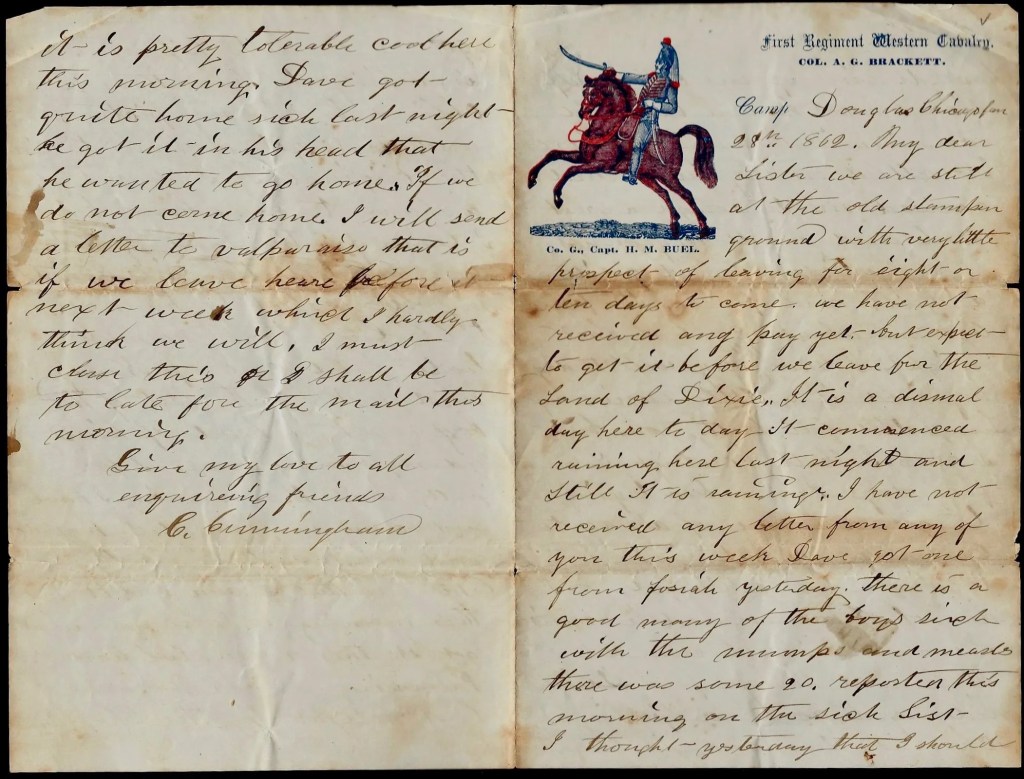 First Regiment Western Cavalry.
COL. A. G. BRACKETT.
Co. G., Capt. H. M. BUEL.
Camp Douglas Chicago Jan
28th 1862. My dear
Sister we are still
at the old stampin
ground with very little
prospect of leaving for eight or
ten days to come. we have not
received any pay yet. but expect
to get it before we leave for the
Land of Dixie,. It is a dismal
day here to day It commenced
raining here last night and
still It is raining. I have not
received any letter from any of
you this week Dave got one
from Josiah yesterday. there is a
good many of the boys sick
with the mumps and measles
there was some 20. reported this
morning on the sick List
I thought yesterday that I should
it is pretty tolerable cool here
this morning. Dave got
quite home sick last night
he got it in his head that
he wanted to go home. If we
do not come home. I will send
a letter to valparaiso that is
if we leave heare before
next week which I hardly
think we will. I must
close this I shall be
to late for the mail this
morning.
Give my love to all
enquireing friends
C. Cunningham